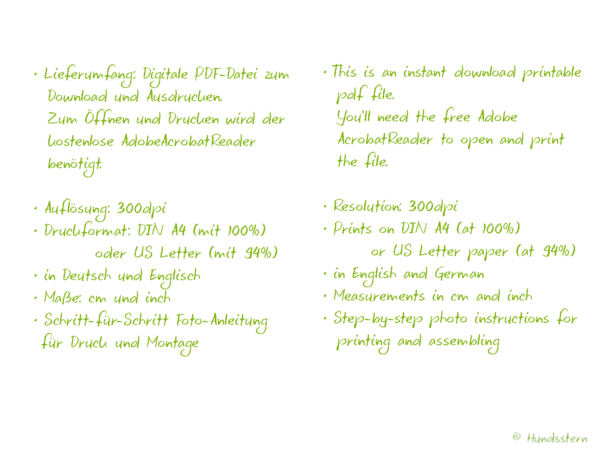 · Lieferumfang: Digitale PDF-Datei zum
Download und Ausdrucken.
Zum Öffnen und Drucken wird der
kostenlose AdobeAcrobatReader
benötigt.
· Auflösung: 300dpi
· Druckformat: DIN A4 (mit 100%)
oder US Letter (mit 94%)
· in Deutsch und Englisch
· Maße: cm und inch
· Schritt-für-Schritt Foto-Anleitung
für Druck und Montage
· This is an instant download printable
pdf file.
You'll need the free Adobe
AcrobatReader to open and print
the file.
· Resolution: 300dpi
· Prints on DIN A4 (at 100%)
or US Letter paper (at 94%)
· in English and German
· Measurements in cm and inch
· Step-by-step photo instructions for
printing and assembling
© Hundsstern